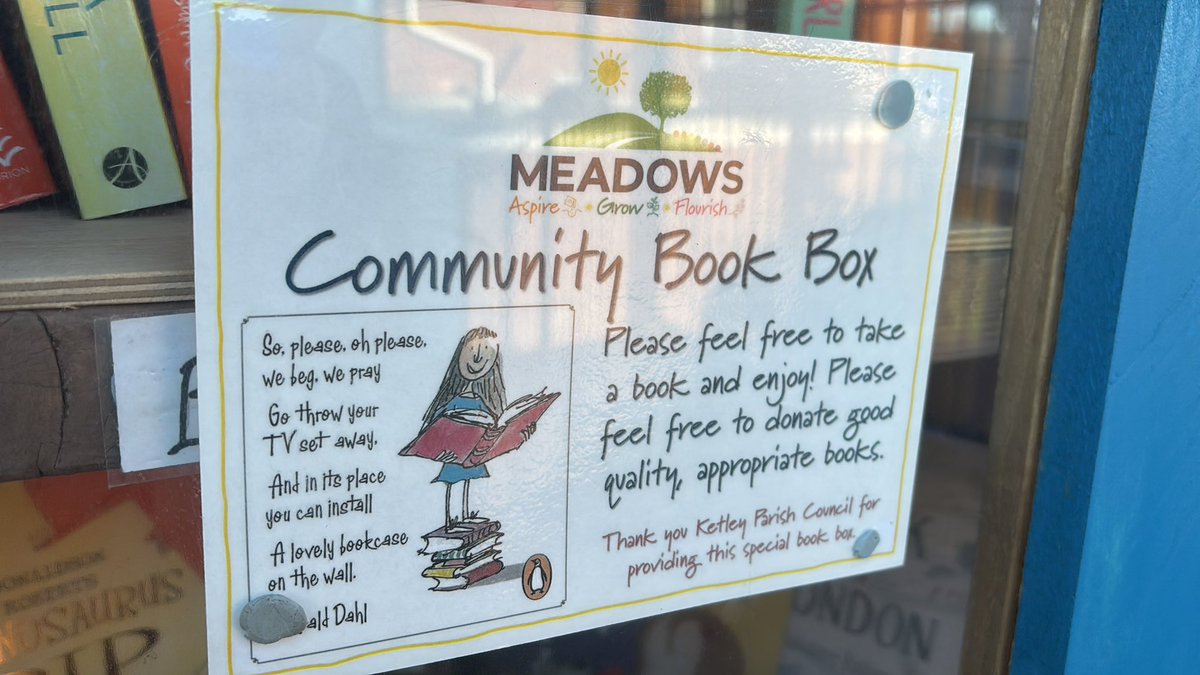 MEADOWS
Aspire Grow Flourish
Community Book Box
So, please, oh please,
we beg, we pray
Go throw your
TV set away,
And in its place
you can install
A lovely bookcase
on the wall.
ald Dahl
Please feel free to take
a book and enjoy! Please
feel free to donate good
quality, appropriate books.
Thank you Ketley Parish Council for
providing this special book box.
ONDON